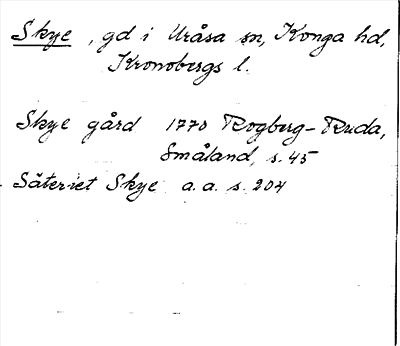 Skye, gd i Uråsa sn, Konga hd,
Kronobergs l.
Skye gård 1770 Rogberg-Ruda,
Småland, s. 45
Säteriet Skye a.a. s. 204